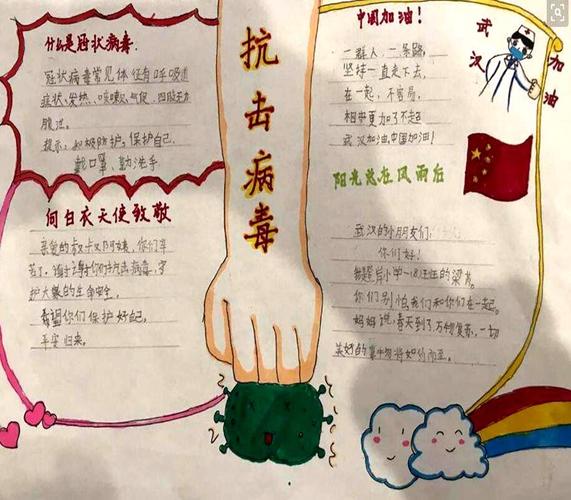 什么是冠状病毒.
冠状病毒常见体征有呼吸道
症状、发热、咳嗽、气促、四肢乏力
腹泻。
提示:积极防护,保护自己.
戴口罩、勤洗手
向白衣天使致敬
亲爱的叔叔阿姨,你们辛
苦了,谢谢你们抗击病毒,守
护大家的生命安全.
希望你们保护好自己,
平安归来。
抗击病毒
中国加油!
一群人,一条路,
坚持一直走下去,
在一起,不容易,
相守更加了不起
武汉加油,中国加油!
武汉
加油
阳光总在风雨后
武汉的小朋友们:
你们好!
我是后小学一
你们别怕我们和你们在一起。
妈妈说,春天到了,万物复苏,一切
美好的事物将如约而至。